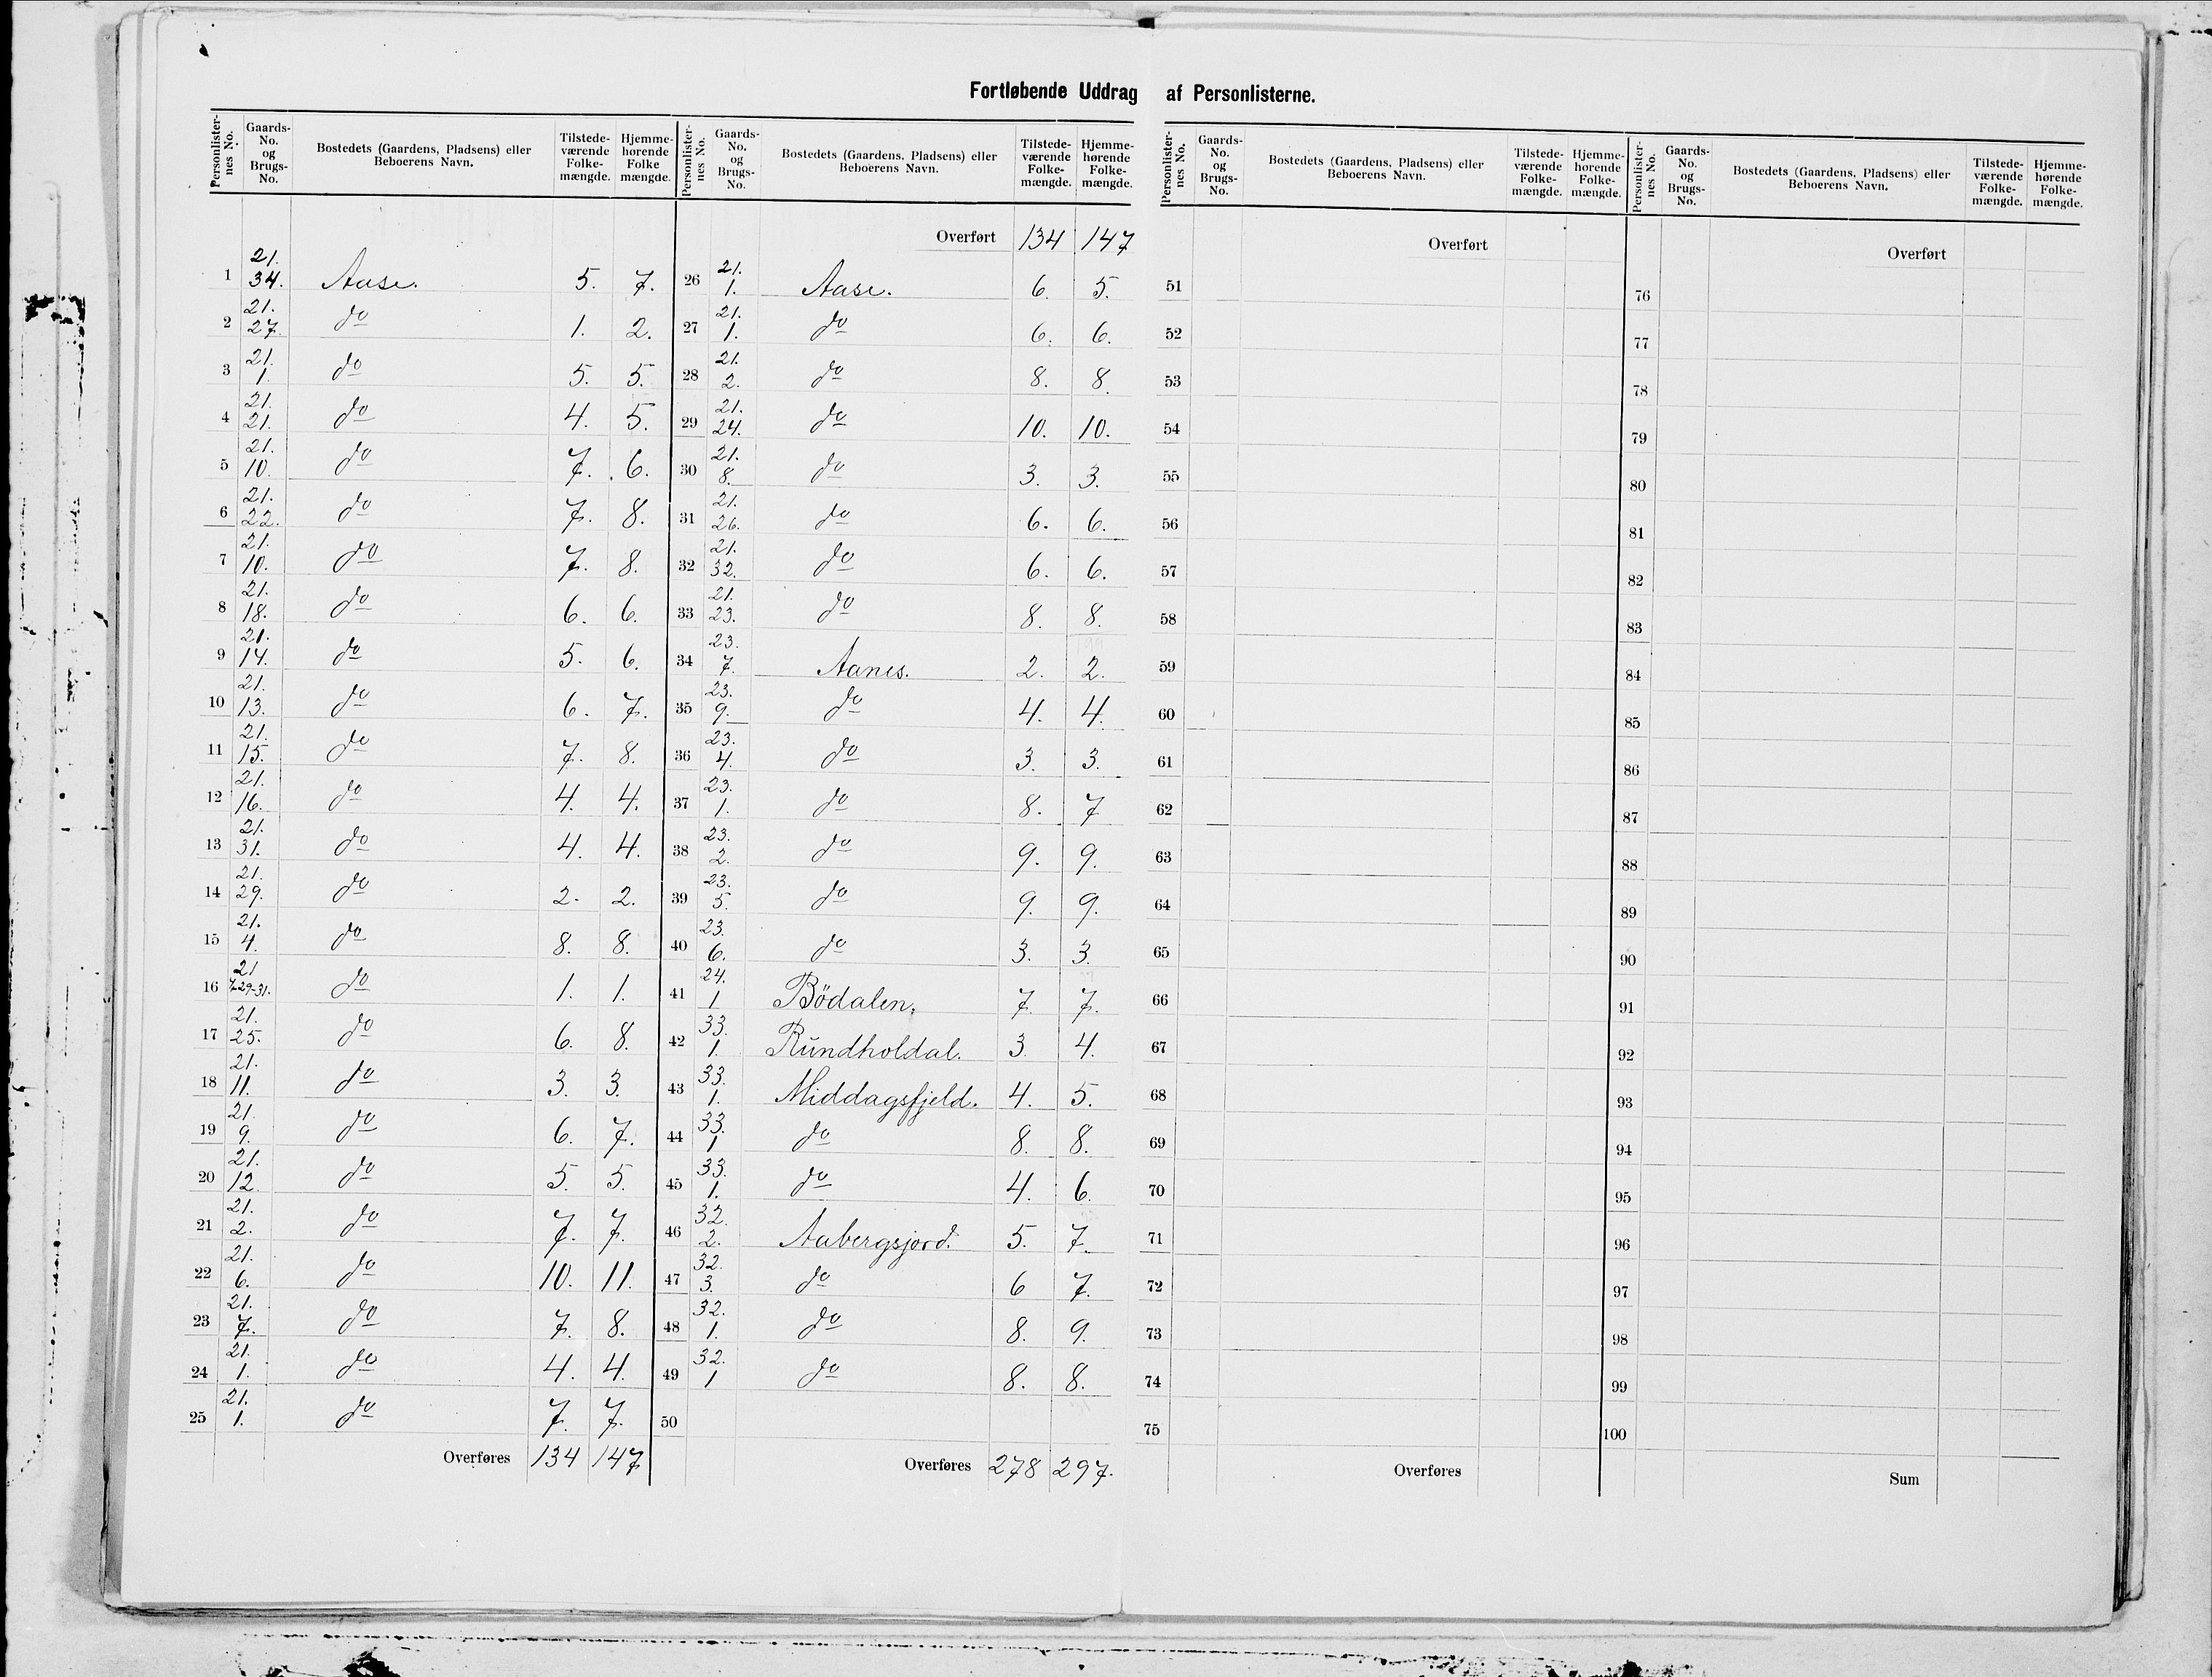 Fortløbende Uddrag af Personlisterne.
Personlisternes No. Gaards-No. og Brugs-No. Bostedets (Gaardens, Pladsens) eller Beboerens Navn. Tilstedeværende Folkemængde. Hjemmehørende Folkemængde.
1 21. 34. Aase. 5. 7.
2 21. 27. do 1. 2.
3 21. 1. do 5. 5.
4 21. 21. do 4. 5.
5 21. 10. do 7. 6.
6 21. 22. do 7. 8.
7 21. 10. do 7. 8.
8 21. 18. do 6. 6.
9 21. 14. do 5. 6.
10 21. 13. do 6. 7.
11 21. 15. do 7. 8.
12 21. 16. do 4. 4.
13 21. 31. do 4. 4.
14 21. 29. do 2. 2.
15 21. 4. do 8. 8.
16 21 7-29-31. do 1. 1.
17 21. 25. do 6. 8.
18 21. 11. do 3. 3.
19 21. 9. do 6. 7.
20 21. 12. do 5. 5.
21 21. 2. do 7. 7.
22 21. 6. do 10. 11.
23 21. 7. do 7. 8.
24 21. 1. do 4. 4.
25 21. 1. do 7. 7.
Overføres 134 147
Personlisternes No. Gaards-No. og Brugs-No. Bostedets (Gaardens, Pladsens) eller Beboerens Navn. Tilstedeværende Folkemængde. Hjemmehørende Folkemængde.
Overført 134 147
26 21. 1. Aase. 6. 5.
27 21. 1. do 6. 6.
28 21. 2. do 8. 8.
29 21. 24. do 10. 10.
30 21. 8. do 3. 3.
31 21. 26. do 6. 6.
32 21. 32. do 6. 6.
33 21. 23. do 8. 8.
34 23. 7. Aanes. 2. 2.
35 23. 9. do 4. 4.
36 23. 4. do 3. 3.
37 23. 1. do 8. 7
38 23. 2. do 9. 9.
39 23. 5. do 9. 9.
40 23. 6. do 3. 3.
41 24. 1 Bödalen. 7. 7.
42 33. 1. Rundholdal. 3. 4.
43 33. 1. Middagsfjeld. 4. 5.
44 33. 1 do 8. 8.
45 33. 1. do 4. 6.
46 32. 2. Aabergsjord. 5. 7.
47 32. 3. do 6 7.
48 32. 1. do 8. 9.
49 32. 1 do 8. 8.
50
Overføres 278 297.
Personlisternes No. Gaards-No. og Brugs-No. Bostedets (Gaardens, Pladsens) eller Beboerens Navn. Tilstedeværende Folkemængde. Hjemmehørende Folkemængde.
Overført
51
52
53
54
55
56
57
58
59
60
61
62
63
64
65
66
67
68
69
70
71
72
73
74
75
Overføres
Personlisternes No. Gaards-No. og Brugs-No. Bostedets (Gaardens, Pladsens) eller Beboerens Navn. Tilstedeværende Folkemængde. Hjemmehørende Folkemængde.
Overført
76
77
78
79
80
81
82
83
84
85
86
87
88
89
90
91
92
93
94
95
96
97
98
99
100
Sum